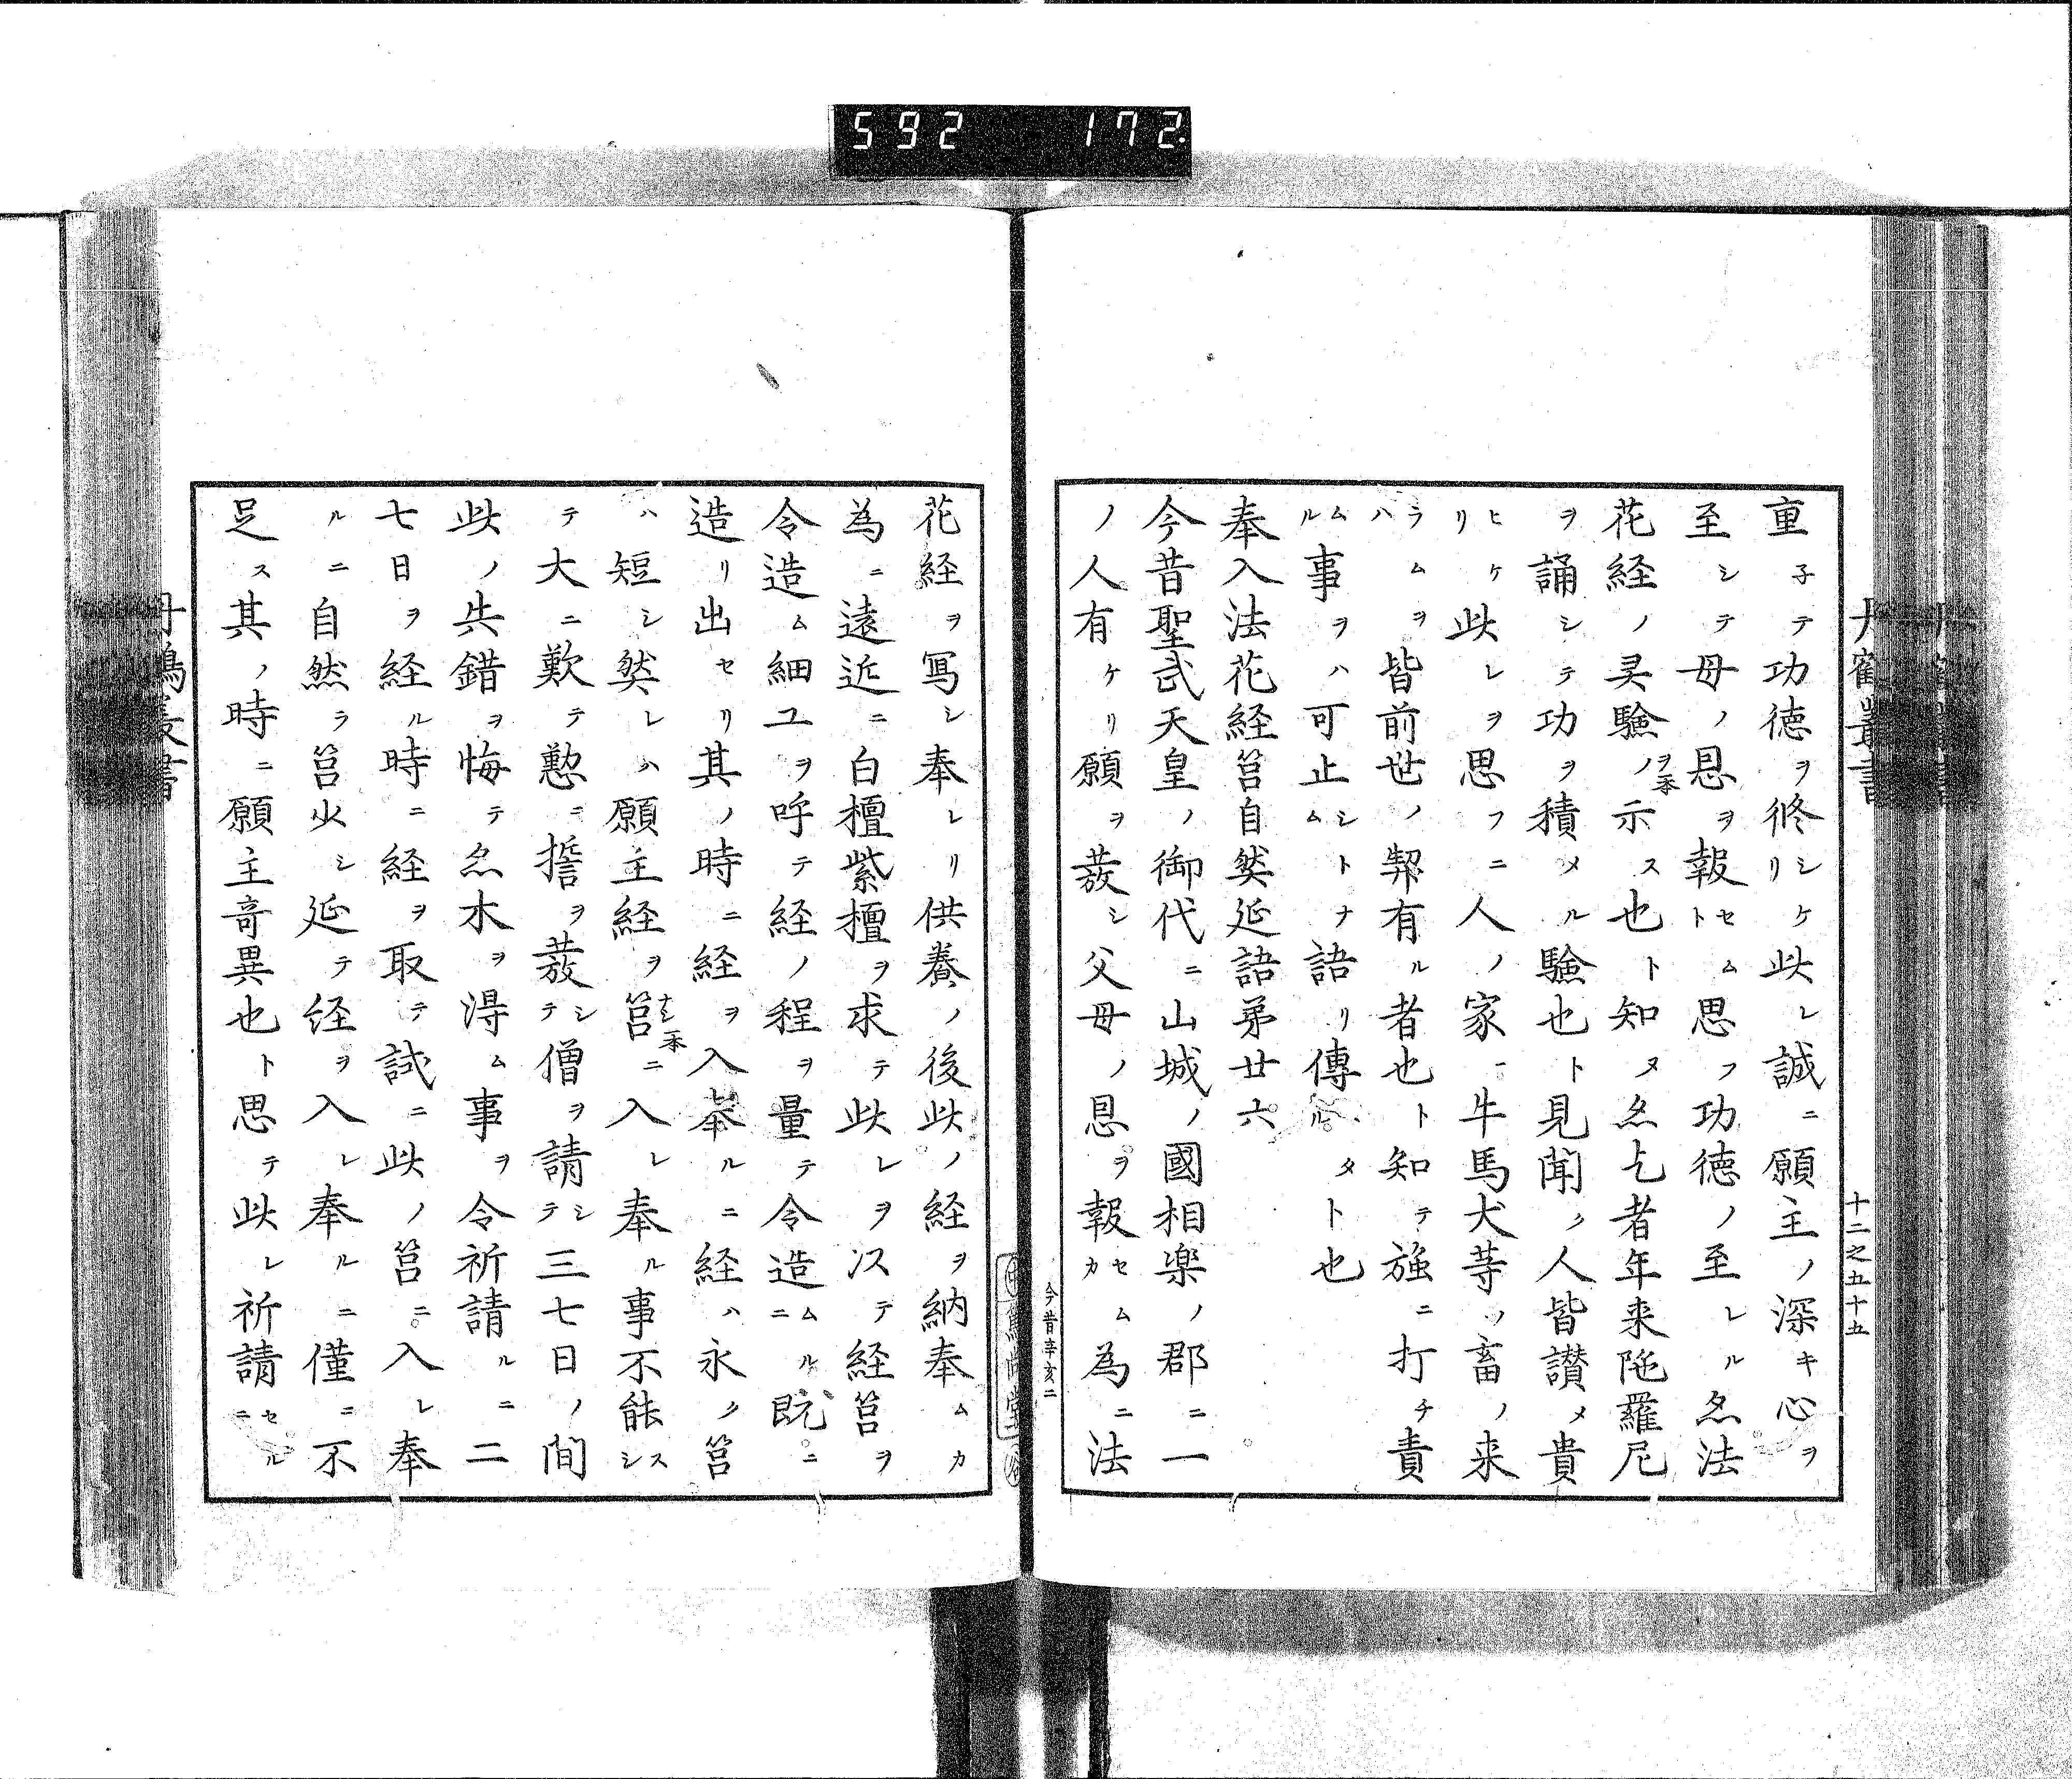 592 172.
丹鶴叢書
十二之五十五
重子テ功徳ヲ修シケリ此レ誠ニ願主ノ深キ心ヲ
至シテ母ノ恩ヲ報セムト思フ功徳ノ至レル亦法
花経ノ灵驗ノヲ本示ス也ト知ヌ亦乞者年来陁羅尼
ヲ誦シテ功ヲ積メル驗也ト見聞ク人皆讃メ貴
ヒケリ此レヲ思フニ人ノ家ニ牛馬犬等ノ畜ノ来
ラムヲハ皆前世ノ契有ル者也ト知テ強ニ打チ責
ムル事ヲハ可止シトナム語リ傳ルタト也
奉入法花経筥自然延語第廿六
今昔聖武天皇ノ御代ニ山城ノ國相楽ノ郡ニ一
ノ人有ケリ願ヲ發シ父母ノ恩ヲ報セムカ為ニ法
今昔辛亥二
花経ヲ写シ奉レリ供養ノ後此ノ経ヲ納奉ムカ
為ニ遠近ニ白檀紫檀ヲ求テ此レヲ以テ経筥ヲ
令造ム細工ヲ呼テ経ノ程ヲ量テ令造ムルニ既ニ
造リ出セリ其ノ時ニ経ヲ入奉ルニ経ハ永ク筥
ハ短シ然レハ願主経ヲ筥ナシ一本ニ入レ奉ル事不能スシ
テ大ニ歎テ懃ニ誓ヲ發シテ僧ヲ請シテ三七日ノ間
此ノ失錯ヲ悔テ亦木ヲ淂ム事ヲ令祈請ルニ二
七日ヲ経ル時ニ経ヲ取テ試ニ此ノ筥ニ入レ奉
ルニ自然ラ筥少シ延テ経ヲ入レ奉ルニ僅ニ不
足ス其ノ時ニ願主奇異也ト思テ此レ祈請セルニ
丹鶴叢書